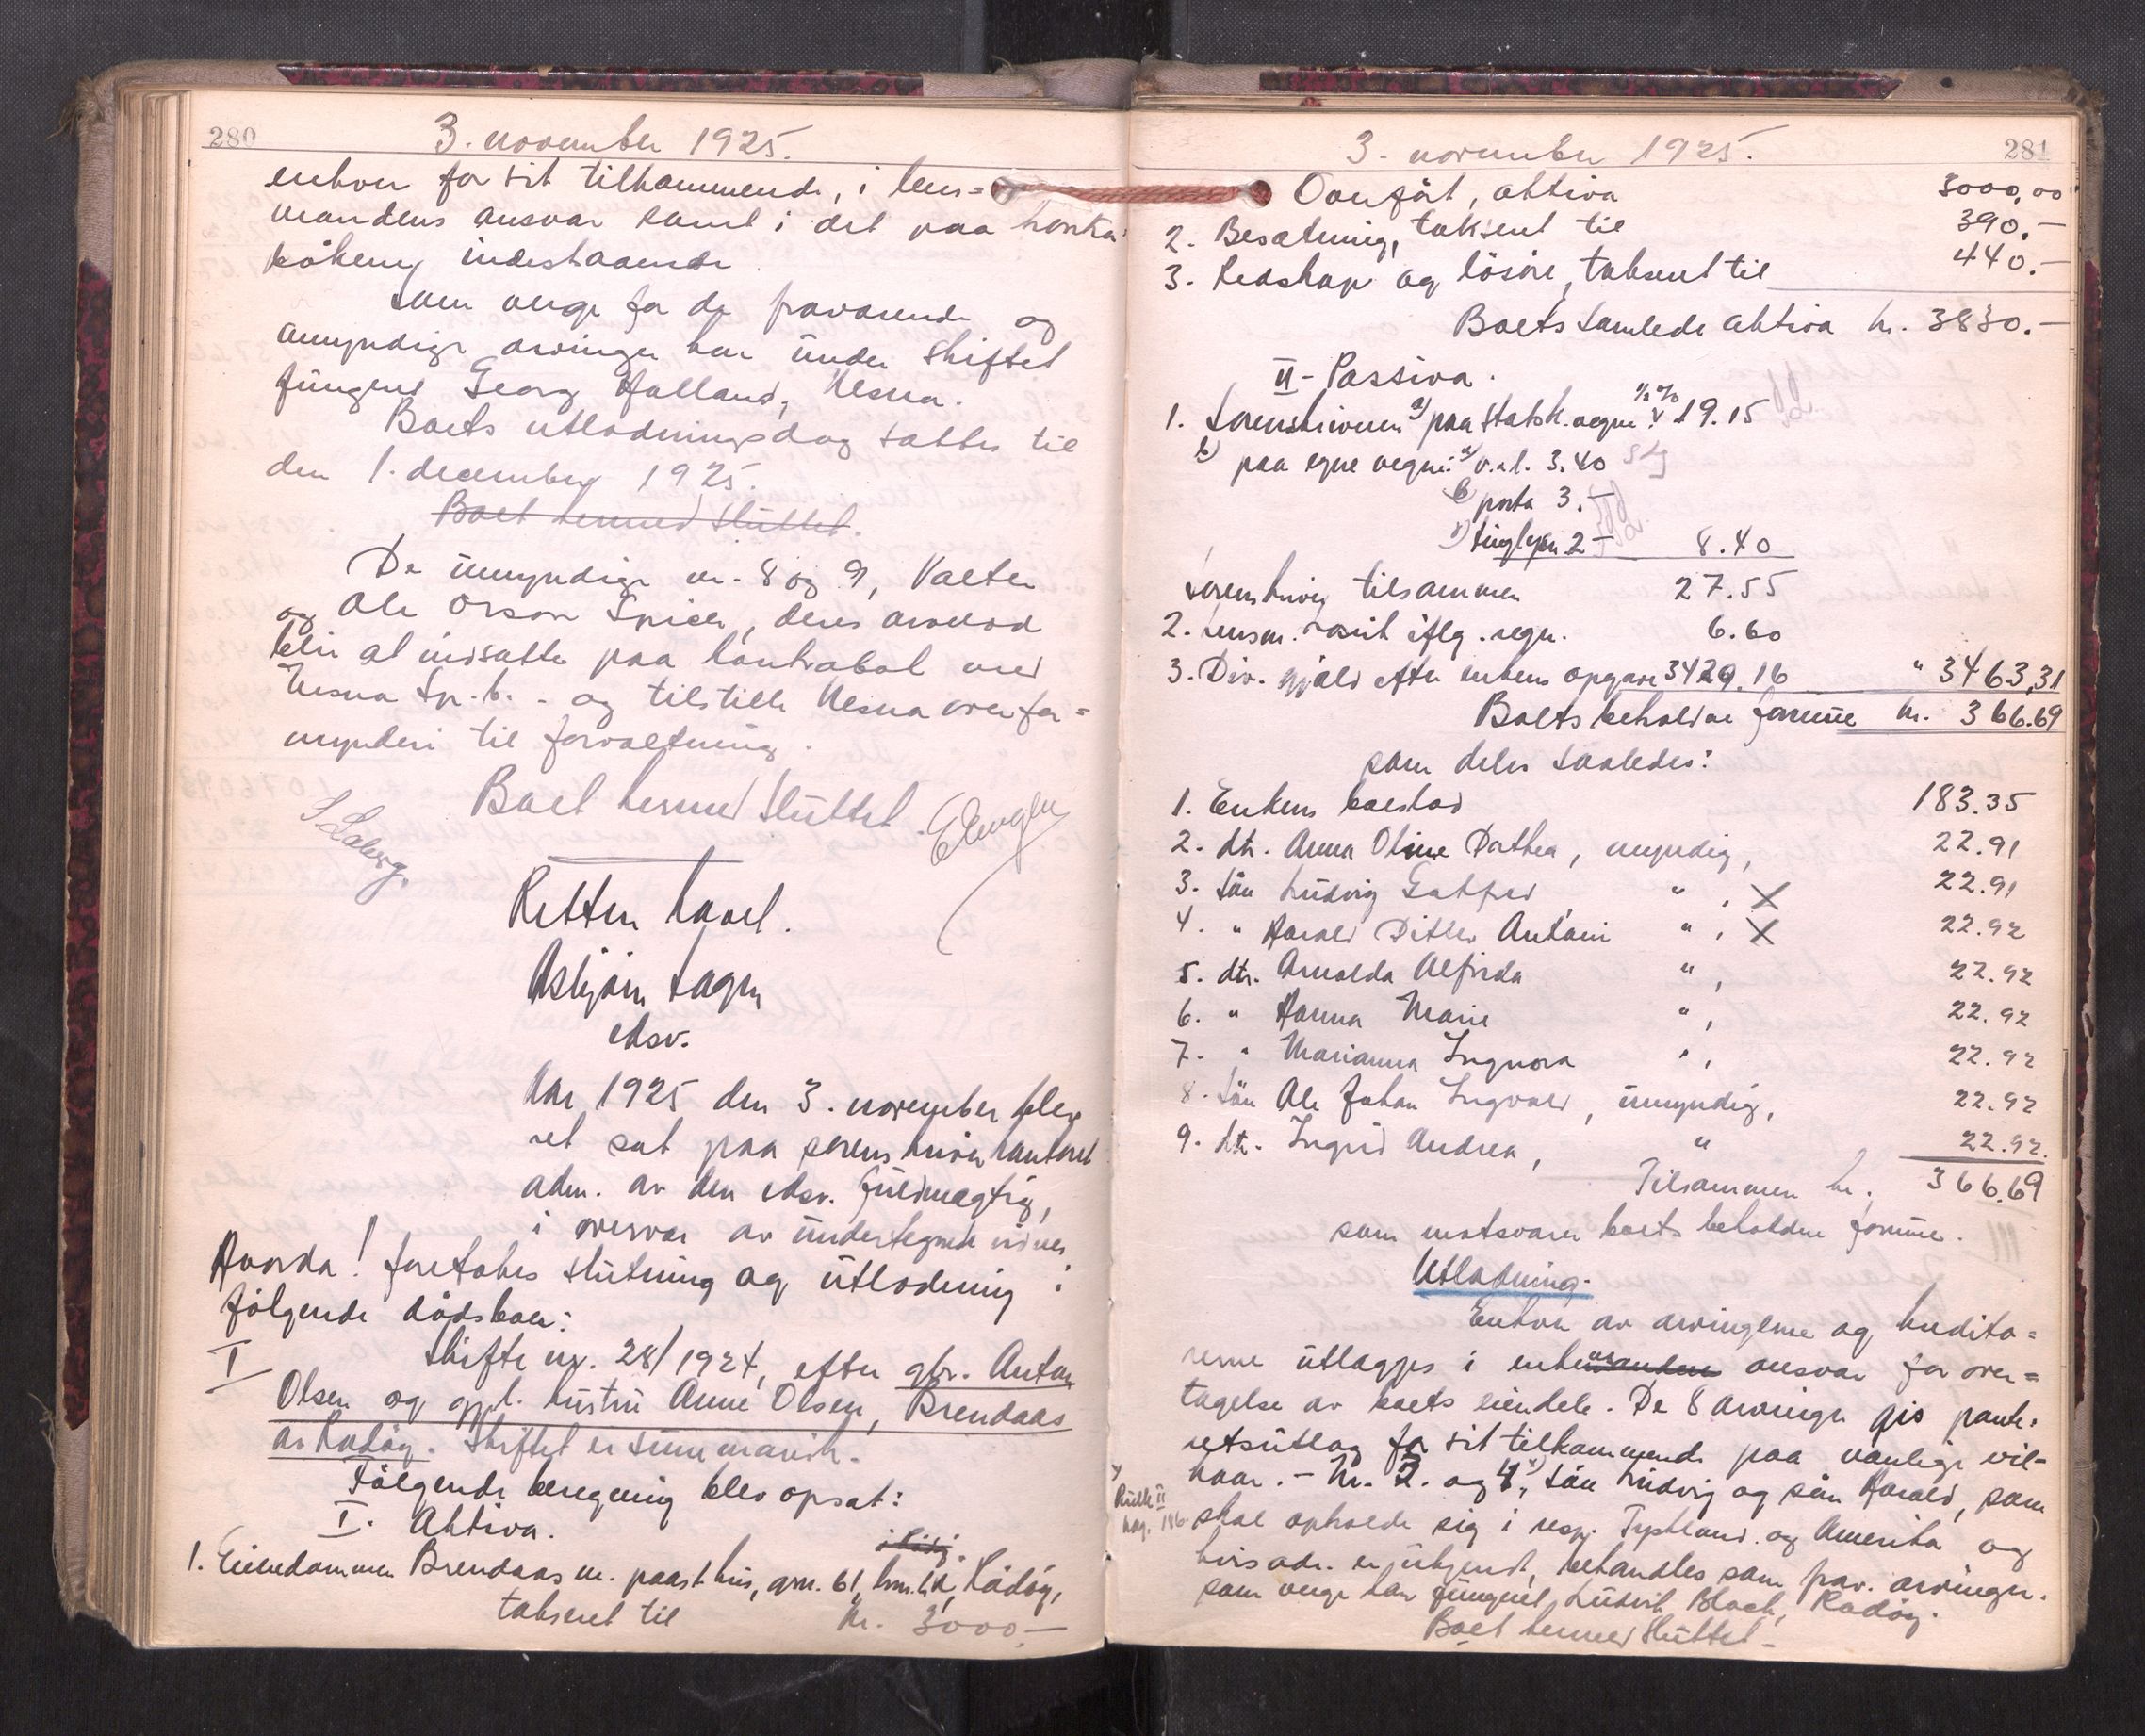 280
3. november 1925.
enhver for sit tilkommende, i lens=
mandens ansvar samt i det paa konto
bokeng indestaaende.
Som verge for de fraværende og
umyndige arvinger har under skiftet
fungert Georg Halland, Nesna.
Boets utlodningsdag sattes til
den 1. december 1925.
Boet hermed sluttet.
De umyndige nr. 8 og 9, Valter
og Ole Orson Spicer, deres arvelod
blir at indsætte paa kontrabok med
Nesna Sp.b. - og tilstille Nesna overfor=
mynderi til forvaltning.
Boet hermed sluttet.
Retten hævet.
Asbjørn Hagen
edsv.
Aar 1925 den 3. november blev
ret sat paa sorenskriverkontoret
adm. av den edsv. fuldmægtig,
i overvær av undertegnede vidner
Hvorda! foretokes slutning og utlodning i
følgende dødsboer:
I
Skifte nr. 28/1924, efter gbr. Anton
Olsen og gjl. hustru Anne Olsen, Brendaas
av Rødøy. Skiftet er summarisk.
Følgende beregning blev opsat:
I. Aktiva.
1. Eiendommen Brendaas m. paast. hus, gnr. 61, bnr. 1a, Rødøy,
takseret til kr. 3000.—
3. november 1925.
281
Overført, aktiva 3000,00
2. Besætning, taksert til 390.—
3. Redskap og løsøre, taksert til 440.—
Boets samlede aktiva kr. 3830.—
II - Passiva.
1. Sorenskriveren a) paa statsk. vegne: ½ % 19.15
b) paa egne vegne: a) v.a.l. 3.40
b) porto 3.—
c) tinglysn 2— 8.40
Sorenskriver tilsammen 27.55
2. Lensm. Rosvik iflg. regn. 6.60
3. Div. gjæld efter enkens opgave 3429.16 " 3463,31
Boets beholdne formue kr. 366.69
som deles saaledes:
1. Enkens boeslod 183.35
2. dtr. Anna Oline Dorthea, myndig, 22.91
3. søn Ludvig Gotfred " , X 22.91
4. " Harald Ditlev Antoni " , X 22.92
5. dtr. Arnolda Alfrida " , 22.92
6. " Hanna Marie " , 22.92
7. " Marianna Ingnora " , 22.92
8. søn Ole Johan Ingvald, umyndig, 22.92
9. dtr. Ingrid Andrea, " 22.92.
Tilsammen kr. 366.69
som motsvarer boets beholdne formue.
Utlodning.
Enhver av arvingerne og kredito=
rerne utlægges i enkens ansvar for over=
tagelse av boets eiendele. De 8 arvinger gis pante=
retsutlæg for sit tilkommende paa vanlige vil=
kaar. - Nr. 3. og 4, x) søn Ludvig og søn Harald, som
skal opholde sig i resp. Tyskland og Amerika og
hvis adr. er ukjendt, behandles som frav. arvinger.
Som verge har fungert Ludvik Block, Rødøy.
Boet hermed sluttet -